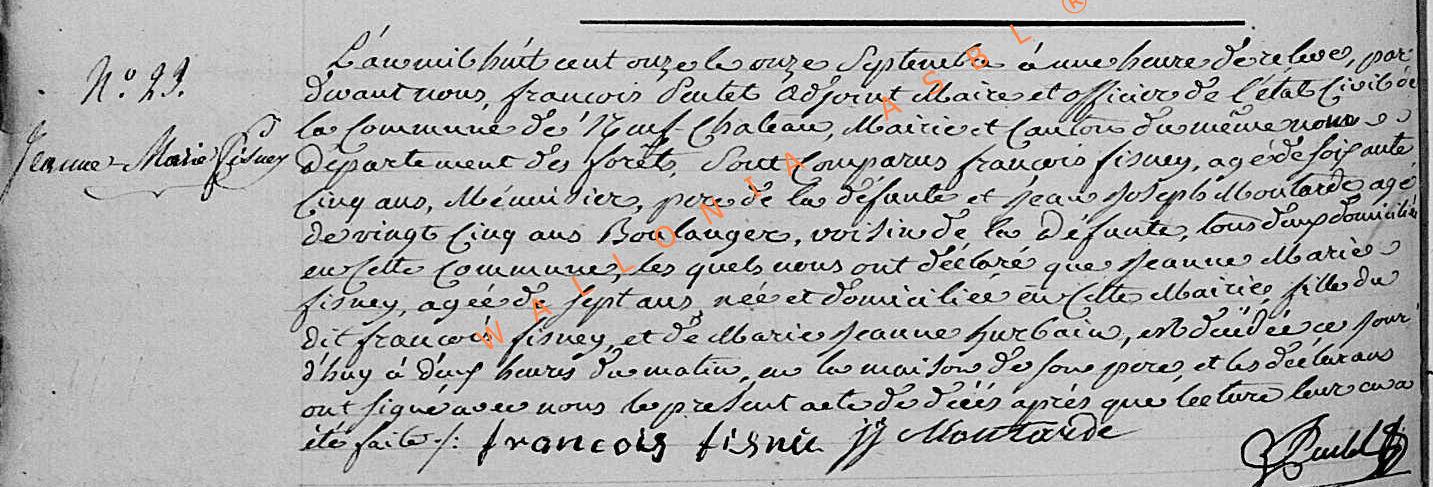 N.° 23.
Jeanne-Marie fisney
L'an mil huit cent onze le onze Septembre à une heure de relevé, par
devant nous, françois Adjoint Maire et officier de l'état Civil de
la Commune de Neuf-Chateau, Mairie et Canton du même nom
département des forêts, Sont Comparus françois fisney, agé de soixante
Cinq ans, Ménuisier, pere de la défunte et Jean Joseph Moutarde agé
de vingt Cinq ans Boulanger, voisin de la Défunte, tous deux domiciliés
en Cette Commune, les quels nous ont déclaré que Jeanne Marie
fisney, agée de sept ans, née et domiciliée en Cette Mairie, fille du
dit françois fisney, et de Marie Jeanne hurbain, est décédée ce jour
d'huy à deux heures du matin, en la maison de son pere, et les déclarans
ont signé avec nous le présent acte de décés après que lecture leur en a
été faite ./.
françois fisnie JJ Moutarde
WALLONIA ASBL ®